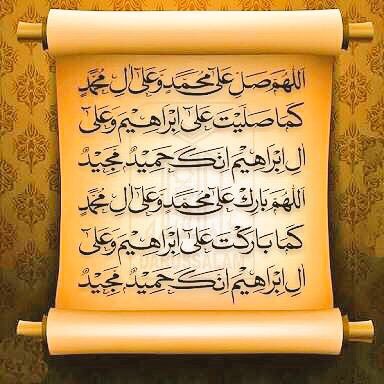 اللهم صل على محمد وعلى ال محمد
كما صليت على ابراهيم وعلى
ال ابراهيم انك حميد مجيد
اللهم بارك على محمد وعلى ال محمد
كما باركت على ابراهيم وعلى
ال ابراهيم انك حميد مجيد